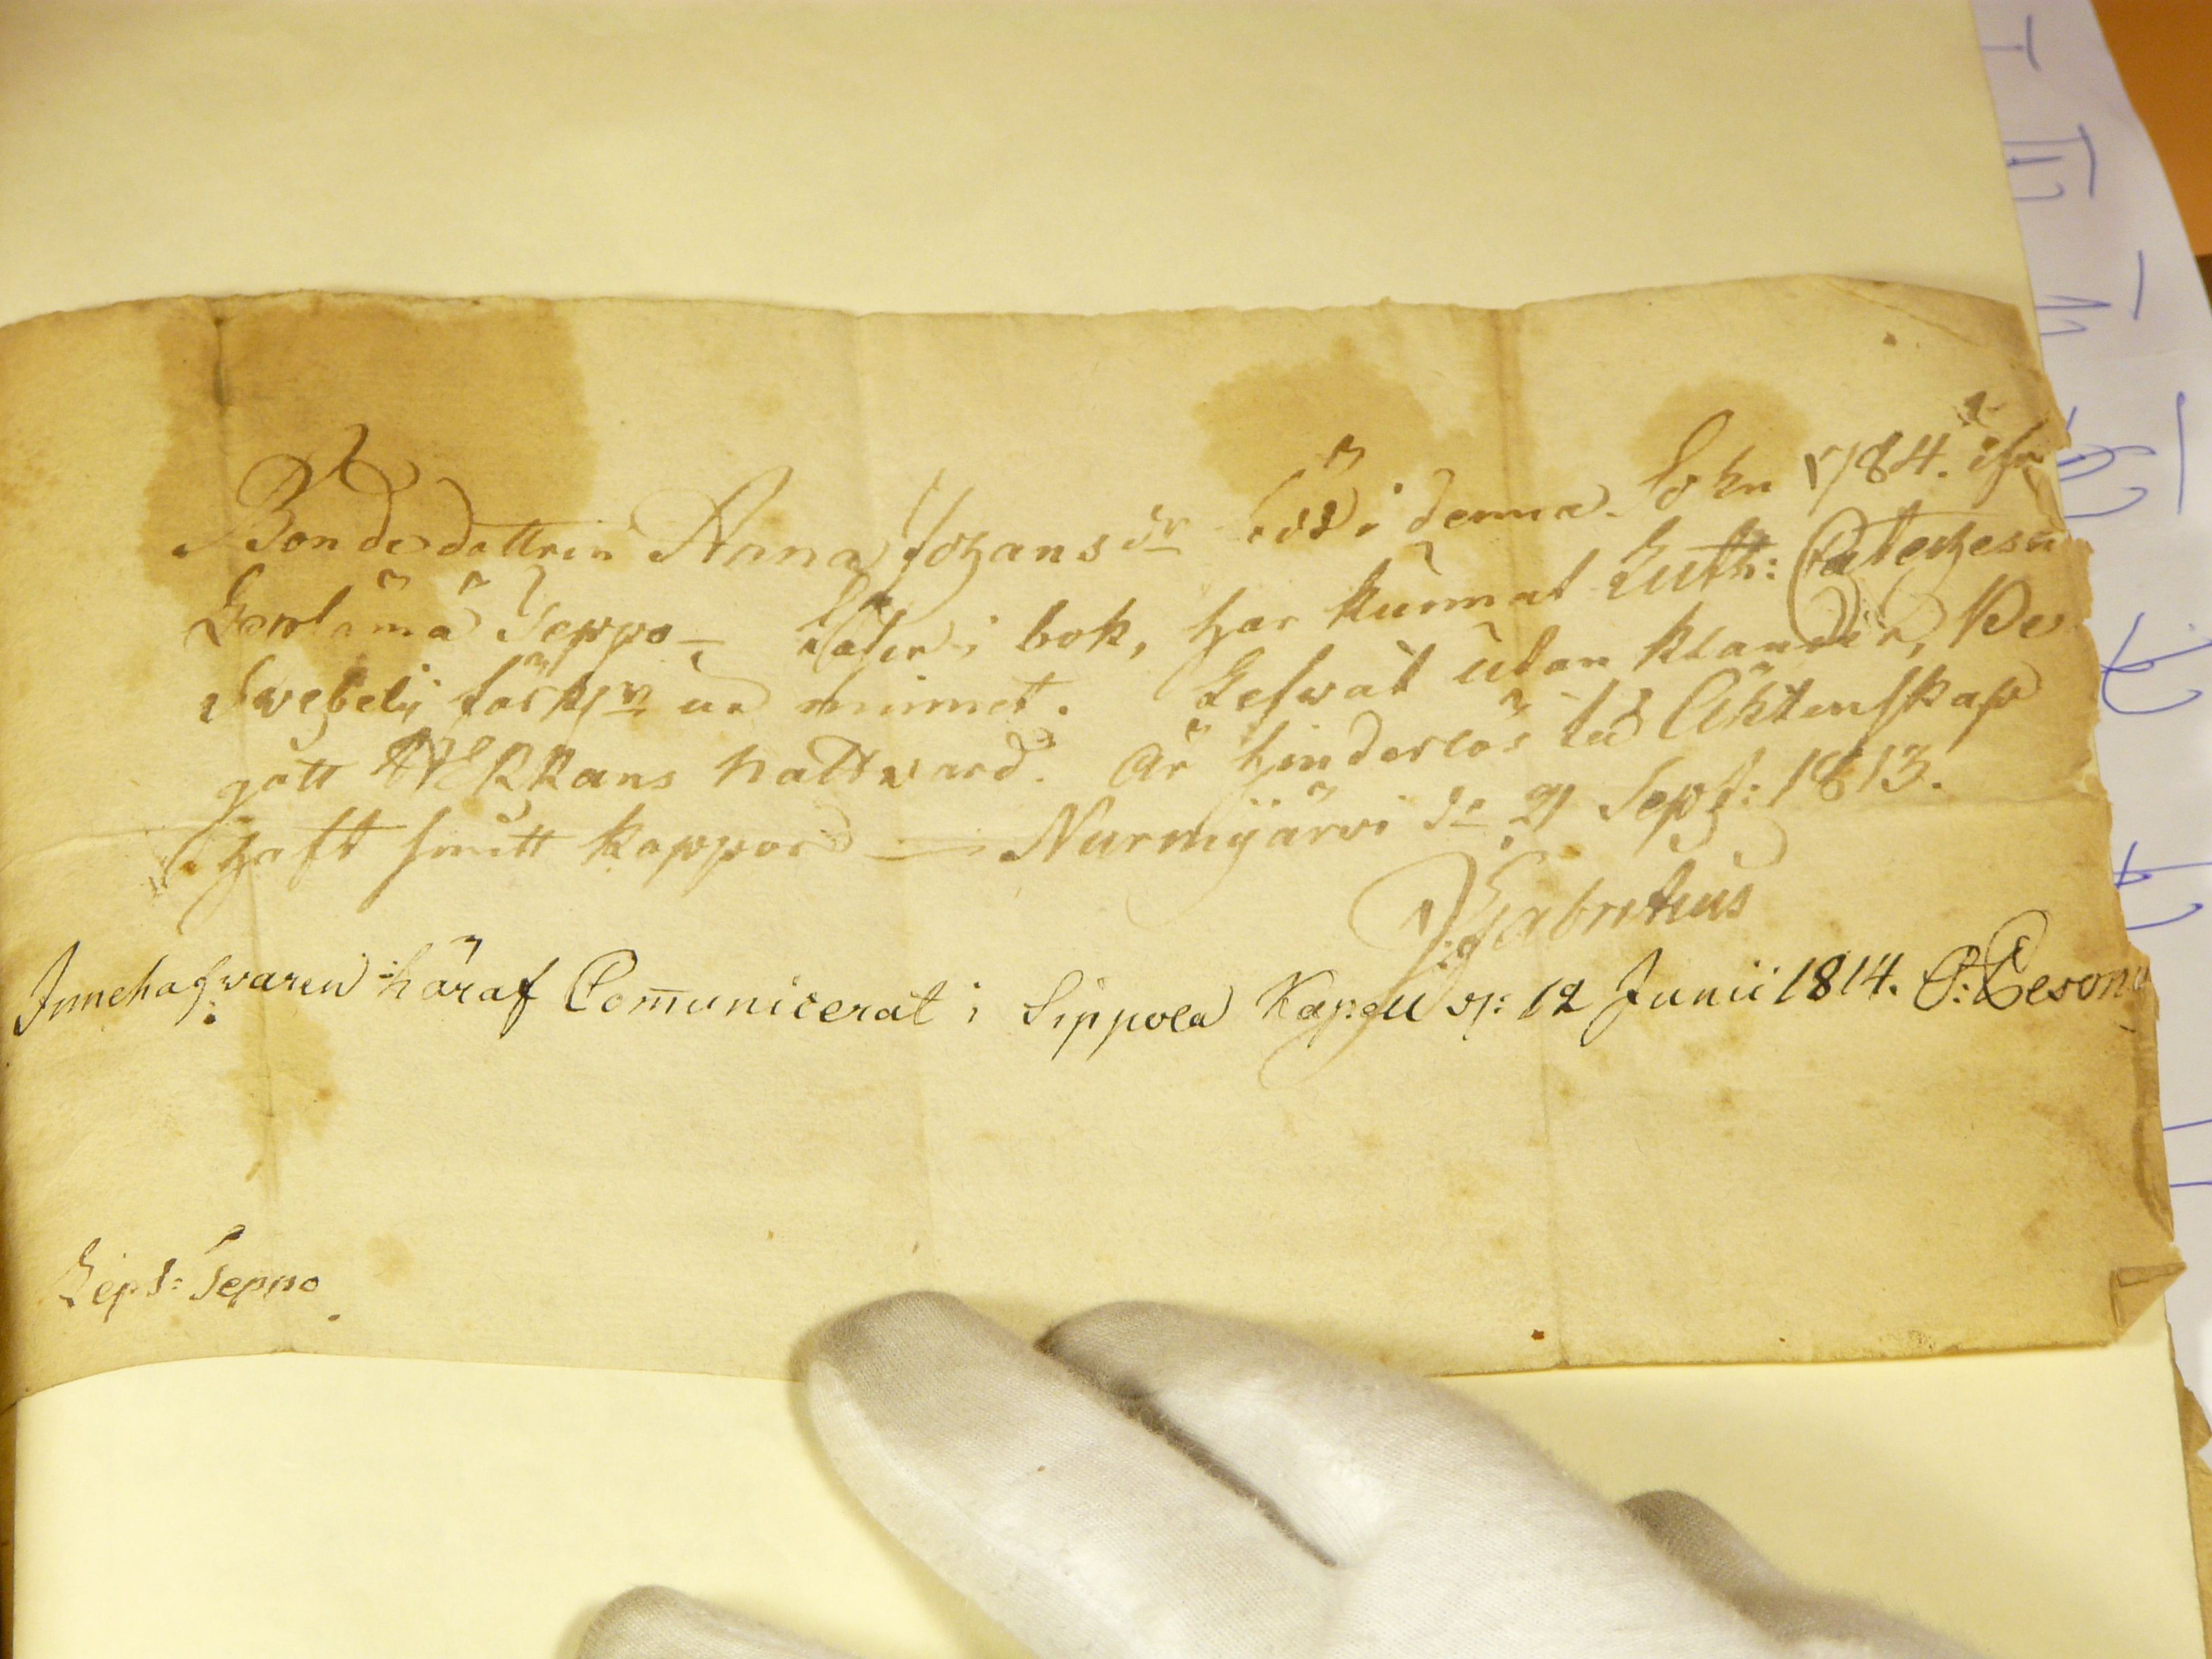 Bondedottren Anna Johans dr född i denna Sokn 1784. ifr
Lepsämä Seppo — Läser i bok, har kunnat Luth: Cateches
Svebelii förkl:r ur minnet. Lefvat utan klander, Be
gått HERRans nattvard. Är hinderlös till Äktenskap
haft smitt koppor — Nurmijärvi d. 21 Sept: 1813.
Fabritius
Innehafvaren häraf Comunicerat i Sippola Kapell d: 12 Junii 1814.
Leps: Seppo